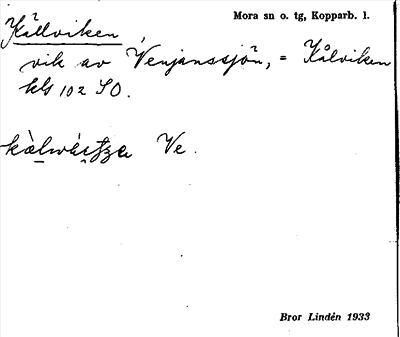 Mora sn o. tg, Kopparb. l.
Kållviken,
vik av Venjanssjön, = Kålviken
kls 102 SO.
Ve.
Bror Lindén 1933